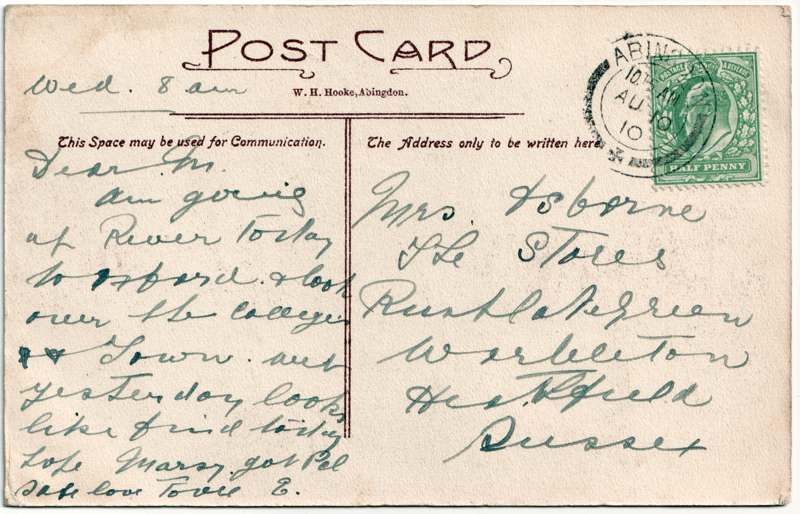 POST CARD
W. H. Hooke, Abingdon.
ABING
10. AM
AU 10
10
HALF PENNY
This Space may be used for Communication.
The Address only to be written here
Wed. 8 am
Dear M.
am going
up River Today
to Oxford & look
over the Colleges
& Town. wet
yesterday looks
like find today
hope got
safe love E.
Mrs. Osborne
The Stores
Green
Warbleton
Heathfield
Sussex